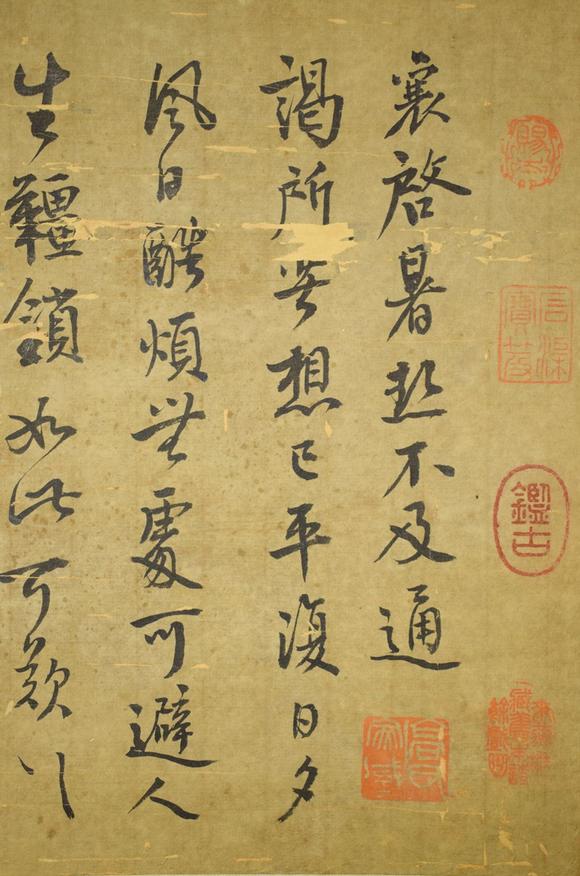 鑑古
襄啓暑熱不及通
謁所苦想已平復日夕
風日酷煩無處可避人
生韁鎖如此可歎〻